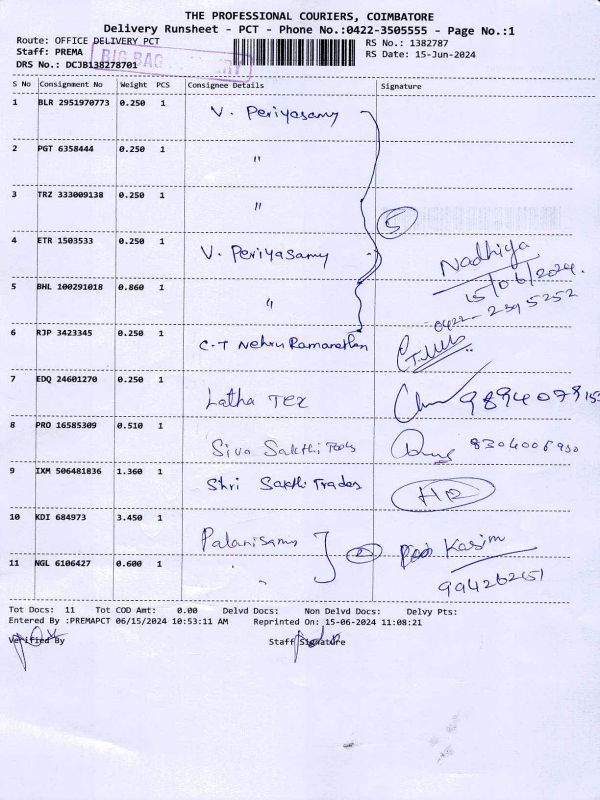 THE PROFESSIONAL COURIERS, COIMBATORE
Delivery Runsheet - PCT - Phone No.:0422-3505555 - Page No.:1
Route: OFFICE DELIVERY PCT
RS No.: 1382787
Staff: PREMA
RS Date: 15-Jun-2024
BIG BAG
DRS No.: DCJB138278701
S No Consignment No Weight PCS Consignee Details Signature
1 BLR 2951970773 0.250 1 V. Periyasamy
2 PGT 6358444 0.250 1 "
3 TRZ 333009138 0.250 1 "
5
4 ETR 1503533 0.250 1 V. Periyasamy Nadhiya
15/06/2024.
5 BHL 100291018 0.860 1 "
0422-2395252
6 RJP 3423345 0.250 1 C.T Nehru Ramanathan
7 EDQ 24601270 0.250 1 Latha Tex
8 PRO 16585309 0.510 1 Siva Sakthi Tools
9 IXM 506481836 1.360 1 Shri Sakthi Trades
10 KDI 684973 3.450 1 Palanisamy 2 Kasim
11 NGL 6106427 0.600 1 "
Tot Docs: 11 Tot COD Amt: 0.00 Delvd Docs: Non Delvd Docs: Delvy Pts:
Entered By :PREMAPCT 06/15/2024 10:53:11 AM Reprinted On: 15-06-2024 11:08:21
Verified By Staff Signature